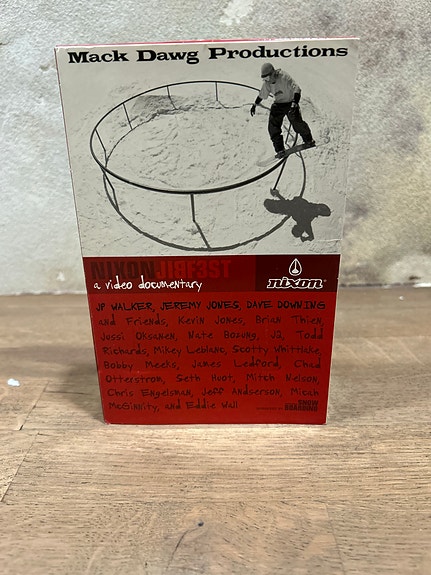 Mack Dawg Productions
NIXON JIBFEST
nixon
a video documentary
JP WALKER, JEREMY JONES, DAVE DOWNING
and Friends, Kevin Jones, Brian Thien,
Jussi Oksanen, Nate Bozung, JØ, Todd
Richards, Mikey Leblanc, Scotty Whittlake,
Bobby Meeks, James Ledford, Chad
Otterstrom, Seth Huot, Mitch Nelson,
Chris Engelsman, Jeff Anderson, Micah
McGinnity, and Eddie Wall
SNOW
BOARDING